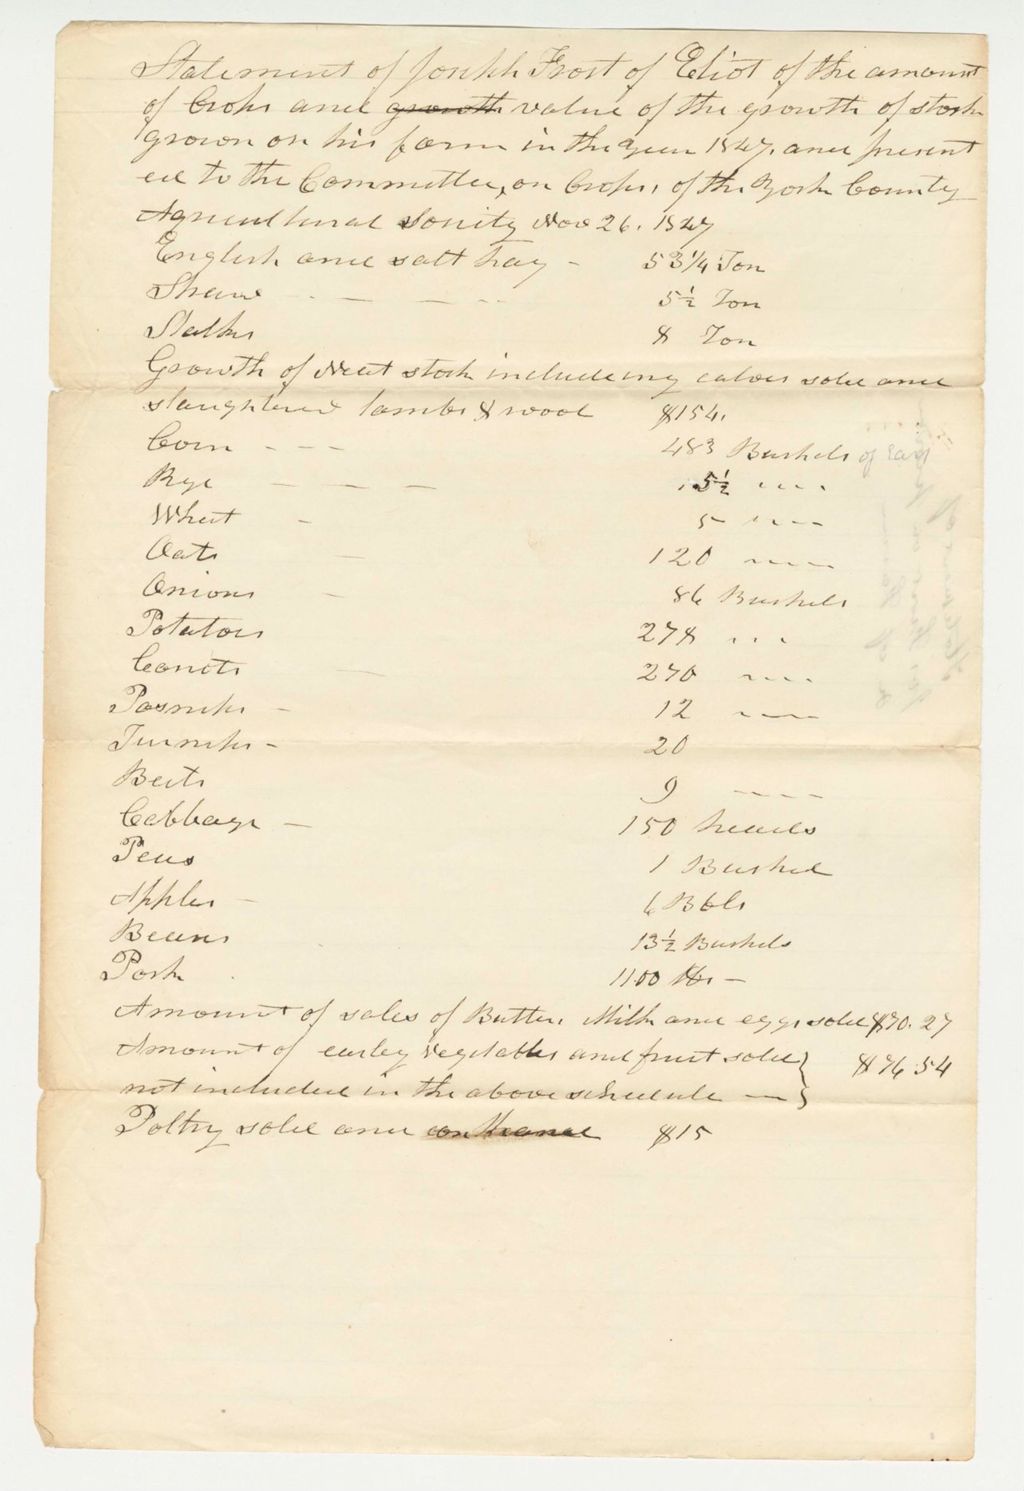 Statement of Joseph Frost of Eliot of the amount
of Crops and growth value of the growth of stock
grown on his farm in the year 1847. and present
ed to the Committee, on Crops, of the York County
Agricultural Society Nov 26. 1847
English and salt hay - 53 1/4 Ton
Straw - - - 5 1/2 Ton
Stalks 8 Ton
Growth of Neat stock including calves sold and
slaughtered lambs & wool $154.
Corn - - - 483 Bushels of Ears
Rye - - - 5 1/2 " " " "
Wheat - 5 " " " "
Oats - 120 " " " "
Onions - 86 Bushels
Potatoes 278 " " "
Carrots - 270 " " " "
Parsnips - 12 " " " "
Turnips - 20
Beets 9 " " " "
Cabbage - 150 heads
Peas 1 Bushel
Apples - 6 Bbls
Beans 13 1/2 Bushels
Pork 1100 lbs -
Amount of sales of Butter, Milk and eggs sold $70.27
Amount of earley vegetables and fruit sold } $76 54
not included in the above schedule -
Poltry sold and on hand $15